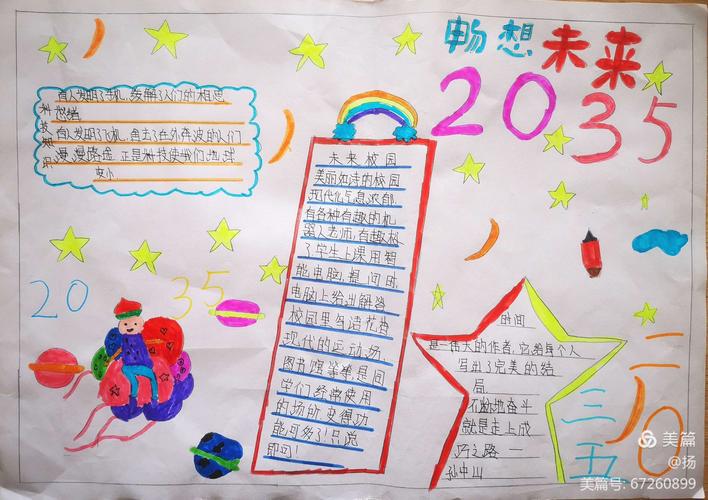 畅想未来
2035
科技知识
有人发明了手机,缓解了人们的相思
愁绪
有人发明了飞机,免去了在外奔波的人们
漫漫路途 正是科技使我们地球
变小
未来校园
美丽如诗的校园
现代化气息浓郁
有各种有趣的机
器人老师,有趣极
了学生上课用智
能电脑,提问时,
电脑上给出解答
校园里鸟语花香
现代的运动场,
图书馆等等是同
学们经常使用
的场所 变得功
能可多了!只说
即可!
2035
时间
是一伟大的作者,它给每个人
写出了完美的结
局
不断地奋斗
就是走上成
功之路一
孙中山
二〇三五
美篇
@扬
美篇号: 67260899